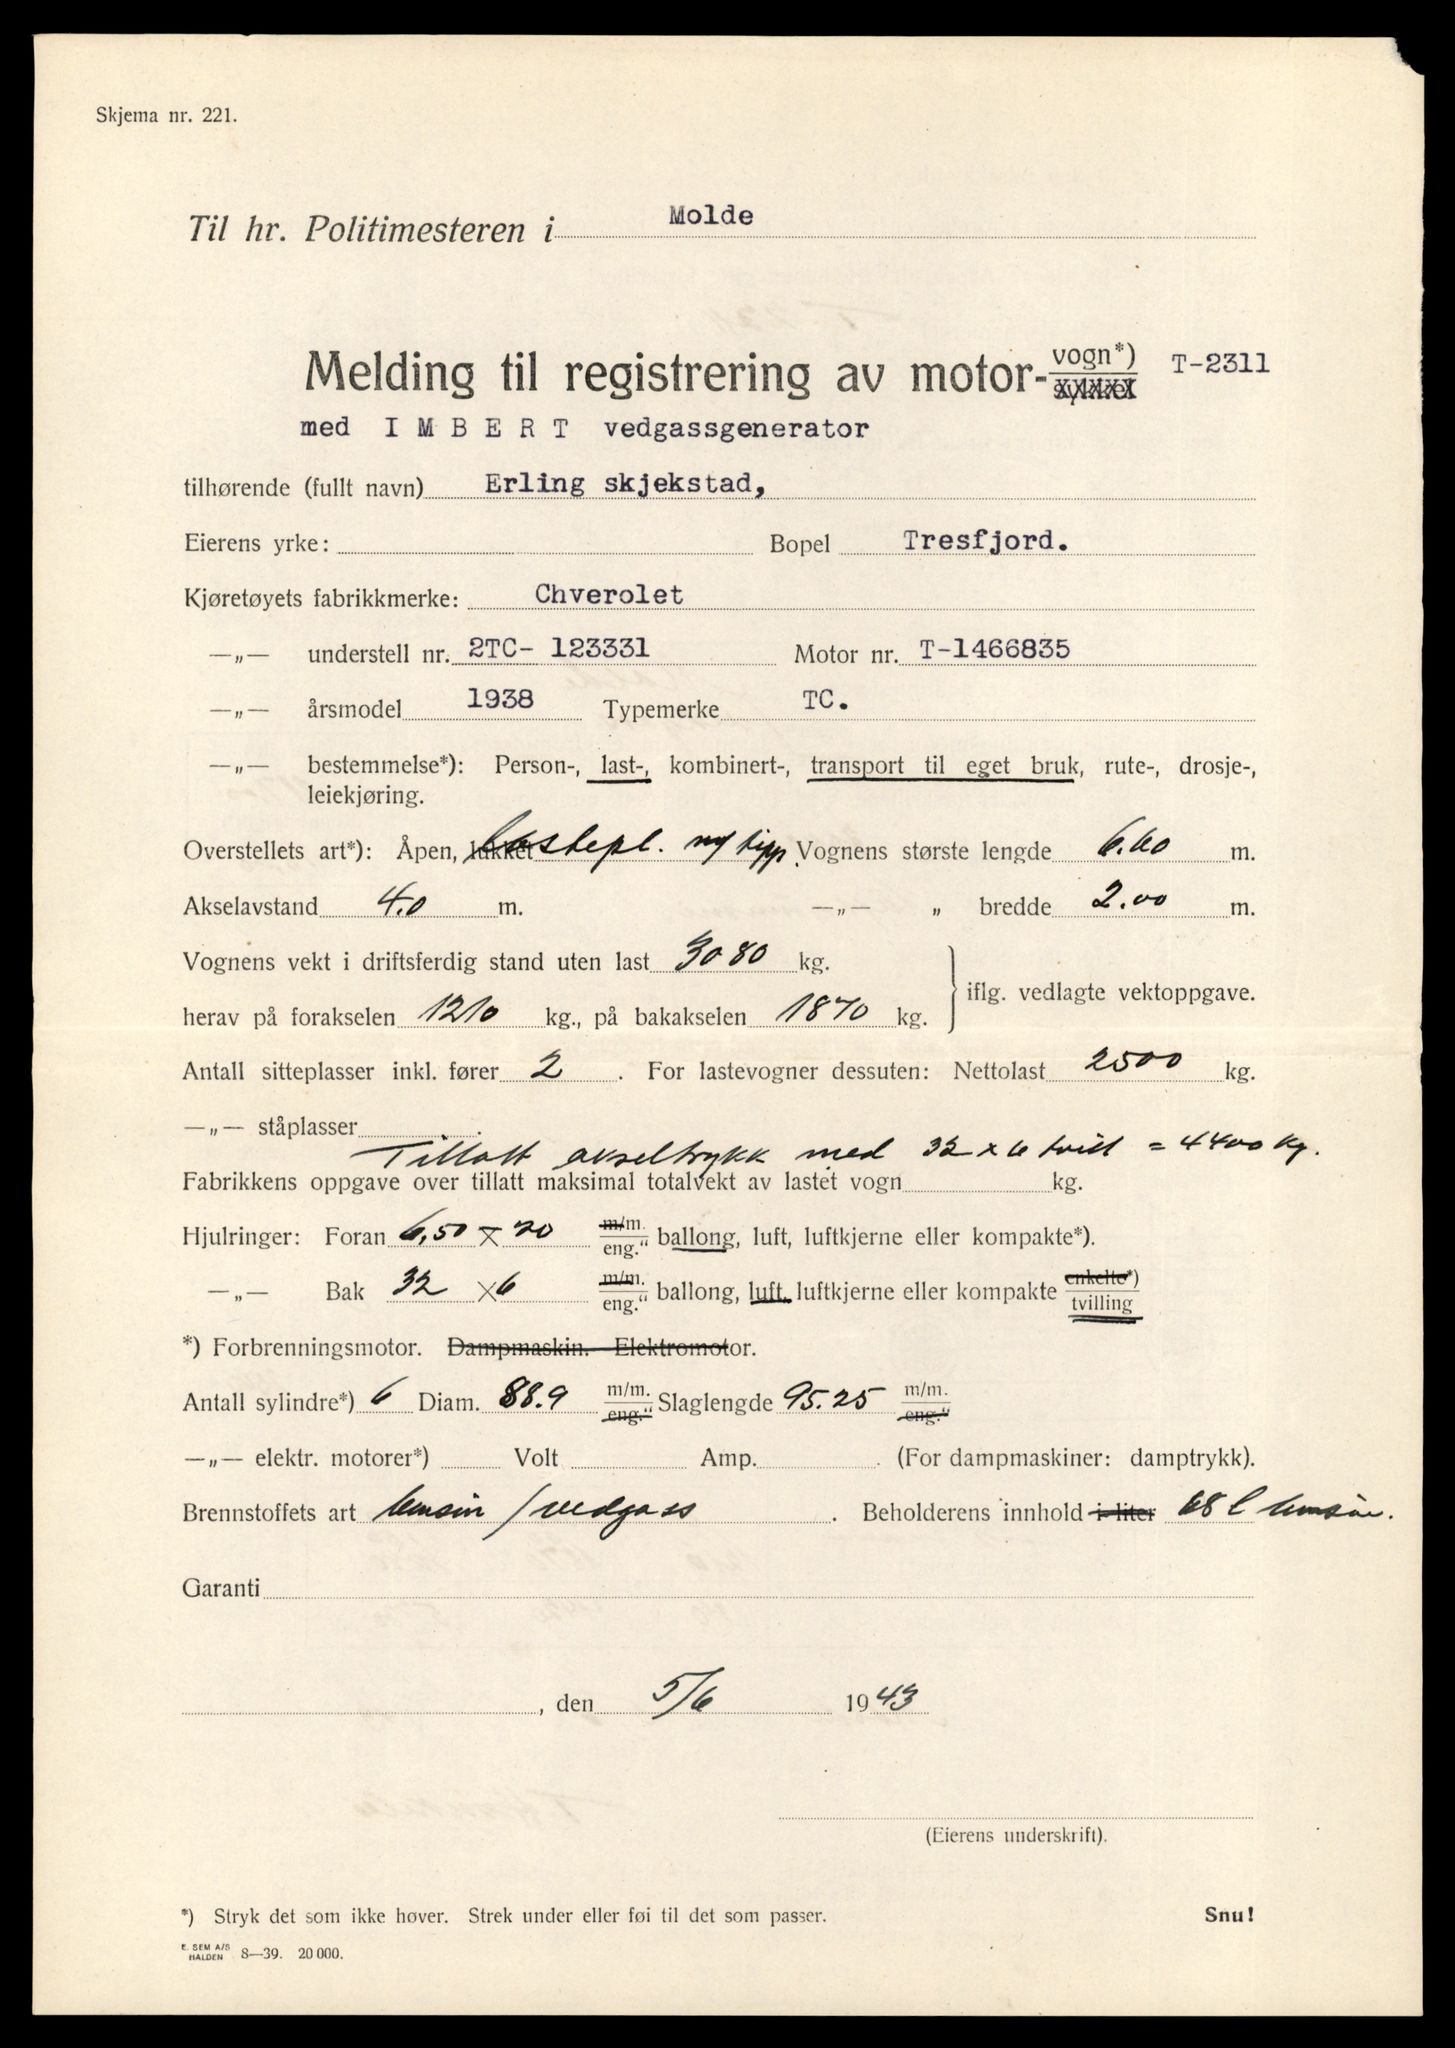 Skjema nr. 221.
Til hr. Politimesteren i Molde
Melding til registrering av motor-vogn*) T-2311
sykkel
med I M B E R T vedgassgenerator
tilhørende (fullt navn) Erling skjekstad,
Eierens yrke: Bopel Tresfjord.
Kjøretøyets fabrikkmerke: Chverolet
—„— understell nr. 2TC- 123331 Motor nr. T-1466835
—„— årsmodel 1938 Typemerke TC.
—„— bestemmelse*): Person-, last-, kombinert-, transport til eget bruk, rute-, drosje-,
leiekjøring.
Overstellets art*): Åpen, lukket lastepl. m/tipp. Vognens største lengde 6.60 m.
Akselavstand 4.0 m. —„— „ bredde 2.00 m.
Vognens vekt i driftsferdig stand uten last 3080 kg.
herav på forakselen 1210 kg., på bakakselen 1870 kg. iflg. vedlagte vektoppgave.
Antall sitteplasser inkl. fører 2. For lastevogner dessuten: Nettolast 2500 kg.
—„— ståplasser .
Tillatt akseltrykk med 32 x 6 tvill = 4400 kg.
Fabrikkens oppgave over tillatt maksimal totalvekt av lastet vogn kg.
Hjulringer: Foran 6,50 x 20 m/m. eng.“ ballong, luft, luftkjerne eller kompakte*).
—„— Bak 32 x 6 m/m. eng.“ ballong, luft, luftkjerne eller kompakte enkelte*) tvilling
*) Forbrenningsmotor. Dampmaskin. Elektromotor.
Antall sylindre*) 6 Diam. 88.9 m/m. eng.“ Slaglengde 95.25 m/m. eng.“
—„— elektr. motorer*) Volt Amp. . (For dampmaskiner: damptrykk).
Brennstoffets art bensin / vedgass . Beholderens innhold i liter 68 l bensin.
Garanti
, den 5/6 1943
(Eierens underskrift).
*) Stryk det som ikke høver. Strek under eller føi til det som passer. Snu!
E. SEM A/S HALDEN 8—39. 20 000.